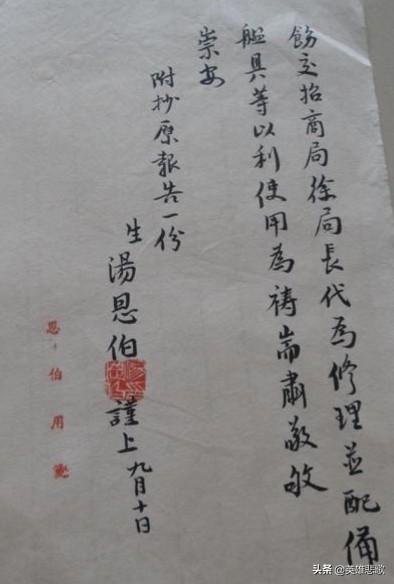 飭交招商局徐局長代為修理並配備
艦具等以利使用為禱耑肅敬敂
崇安
附抄原報告一份
生湯恩伯謹上九月十日
恩伯用箋
头条 @英雄悲歌